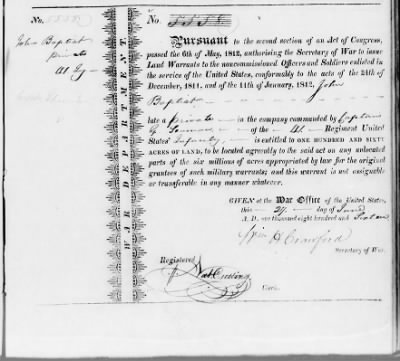 No.
No.
John Baptist
private
Pursuant to the second section of an Act of Congress,
passed the 6th of May, 1812, authorising the Secretary of War to issue
Land Warrants to the noncommissioned Officers and Soldiers enlisted in
the service of the United States, conformably to the acts of the 24th of
December, 1811, and of the 11th of January, 1812, John
Baptist
late a private in the company commanded by Captain
of the Regiment United
States' Infantry is entitled to ONE HUNDRED AND SIXTY
ACRES OF LAND, to be located agreeably to the said act on any unlocated
parts of the six millions of acres appropriated by law for the original
grantees of such military warrants; and this warrant is not assignable
or transferable in any manner whatever.
GIVEN at the War Office of the United States,
this 29 day of
A. D. one thousand eight hundred and Sixteen
Wm H Crawford
Secretary of War.
Registered
Nat Cutting
Clerk.
WAR DEPARTMENT.